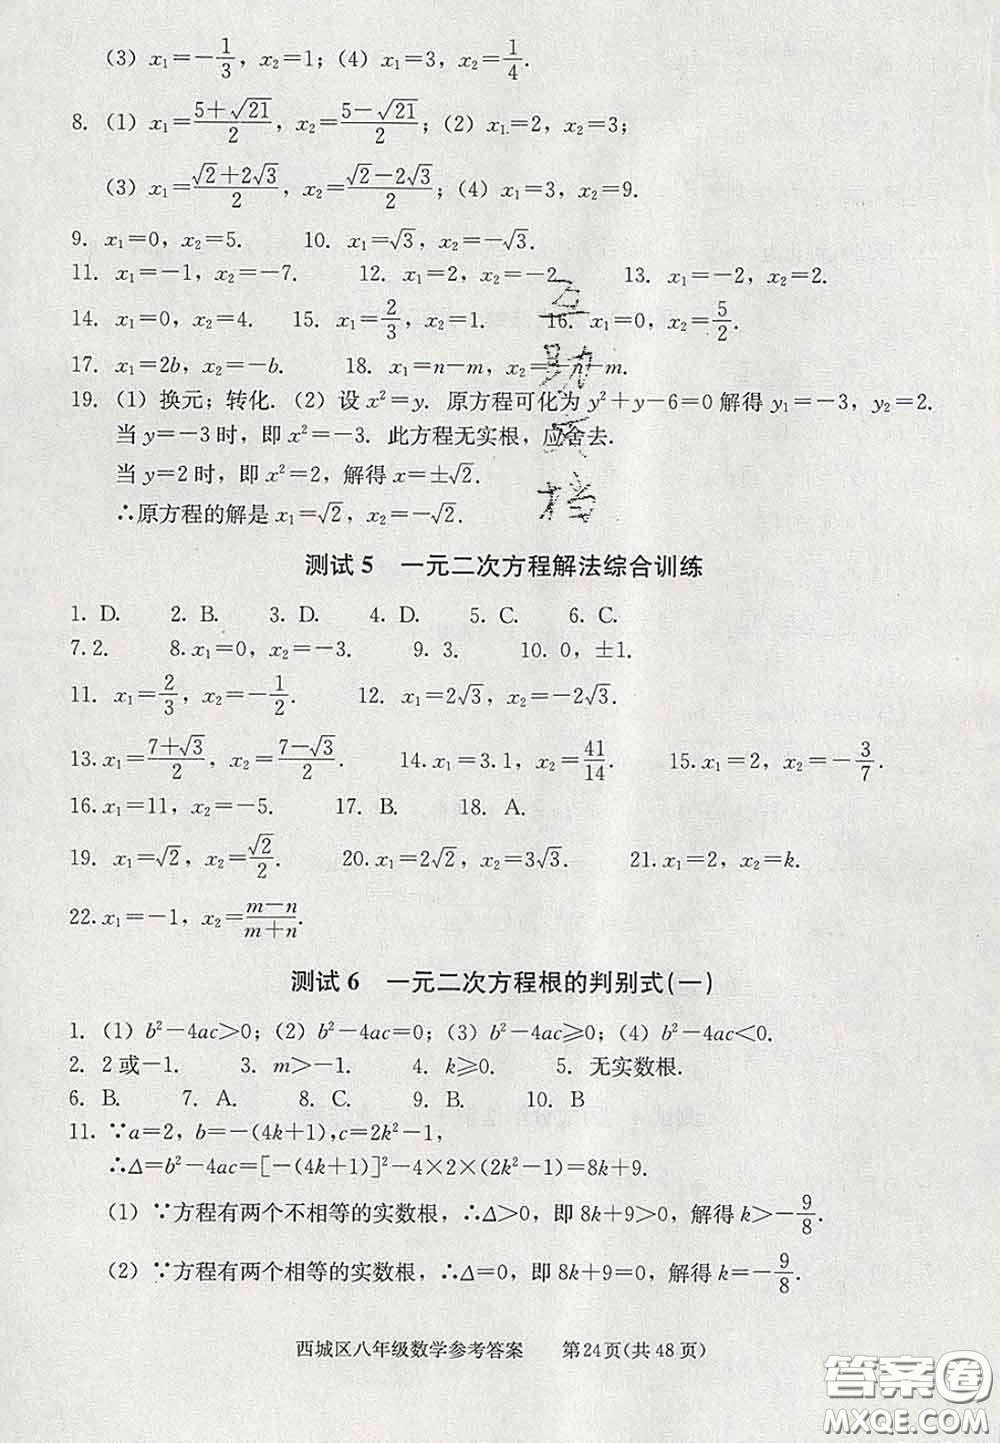 (3) x₁=-1/3, x₂=1; (4) x₁=3, x₂=1/4.
8. (1) x₁=(5+√21)/2, x₂=(5-√21)/2; (2) x₁=2, x₂=3;
(3) x₁=(√2+2√3)/2, x₂=(√2-2√3)/2; (4) x₁=3, x₂=9.
9. x₁=0, x₂=5. 10. x₁=√3, x₂=-√3.
11. x₁=-1, x₂=-7. 12. x₁=2, x₂=-2. 13. x₁=-2, x₂=2.
14. x₁=0, x₂=4. 15. x₁=2/3, x₂=1. 16. x₁=0, x₂=5/2.
17. x₁=2b, x₂=-b. 18. x₁=n-m, x₂=-n-m.
19. (1) 换元; 转化. (2) 设 x²=y. 原方程可化为 y²+y-6=0 解得 y₁=-3, y₂=2.
当 y=-3 时, 即 x²=-3. 此方程无实根, 应舍去.
当 y=2 时, 即 x²=2, 解得 x=±√2.
∴原方程的解是 x₁=√2, x₂=-√2.
测试 5 一元二次方程解法综合训练
1. D. 2. B. 3. D. 4. D. 5. C. 6. C.
7. 2. 8. x₁=0, x₂=-3. 9. 3. 10. 0, ±1.
11. x₁=2/3, x₂=-1/2. 12. x₁=2√3, x₂=-2√3.
13. x₁=(7+√3)/2, x₂=(7-√3)/2. 14. x₁=3.1, x₂=41/14. 15. x₁=2, x₂=-3/7.
16. x₁=11, x₂=-5. 17. B. 18. A.
19. x₁=√2, x₂=√2/2. 20. x₁=2√2, x₂=3√3. 21. x₁=2, x₂=k.
22. x₁=-1, x₂=(m-n)/(m+n).
测试 6 一元二次方程根的判别式(一)
1. (1) b²-4ac>0; (2) b²-4ac=0; (3) b²-4ac≥0; (4) b²-4ac<0.
2. 2或-1. 3. m>-1. 4. k≥0. 5. 无实数根.
6. B. 7. A. 8. C. 9. B. 10. B
11. ∵a=2, b=-(4k+1), c=2k²-1,
∴Δ=b²-4ac=[-(4k+1)]²-4×2×(2k²-1)=8k+9.
(1) ∵方程有两个不相等的实数根, ∴Δ>0, 即 8k+9>0, 解得 k>-9/8.
(2) ∵方程有两个相等的实数根, ∴Δ=0, 即 8k+9=0, 解得 k=-9/8.
西城区八年级数学参考答案 第24页(共48页)
答案圈
MXQE.COM